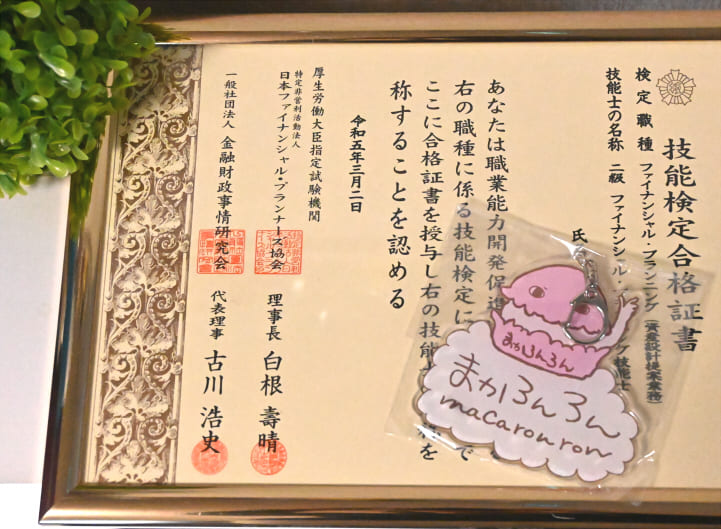 技能検定合格証書
検定職種 ファイナンシャル・プランニング(資産設計提案業務)
技能士の名称 二級 ファイナンシャル・
グ技能士
氏
あなたは職業能力開発促進
右の職種に係る技能検定に
で
ここに合格証書を授与し右の技能
を
称することを認める
令和五年三月二日
厚生労働大臣指定試験機関
特定非営利活動法人
日本ファイナンシャル・プランナーズ協会 理事長 白根壽晴
一般社団法人 金融財政事情研究会 代表理事 古川浩史
まかろんろん
まかろんろん
macaronron